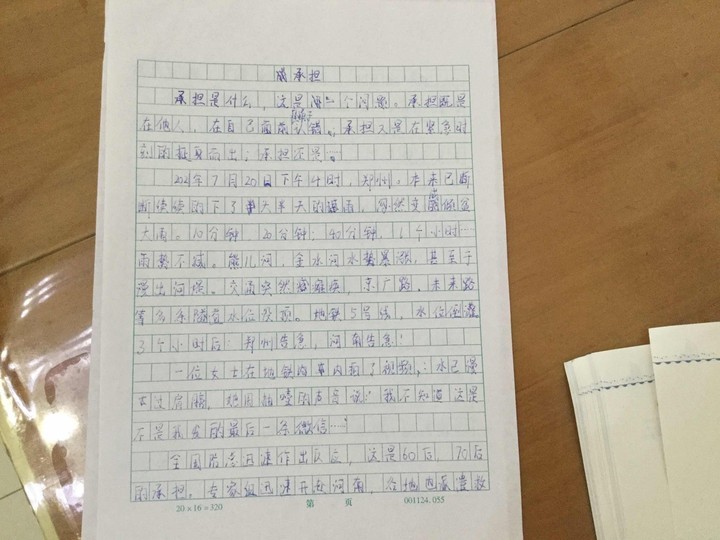 成承担
承担是什么，这是个问题。承担既是
在他人，在自己面前认错。承担又是在紧急时
刻的挺身而出；承担还是…
2021年7月20日下午4时，郑州。本来已断
断续续的下了大半天的，突然变倾盆
大雨。10分钟，20分钟；40分钟，1个小时…
雨势不减。熊儿河，金水河水势暴涨，甚至于
漫出河堤。交通突然瘫痪，京广路，未来路
等隧道水位没顶。地铁5号线，水位倒灌
3个小时后：郑州告急，河南告急！
一位女士在地铁内拍了视频，：水已漫
过肩膀，她用的声音说："我不知道这是
不是我发的最后一条微信…"
全国迅速作出反应，这是60后，70后
的承担。专家组迅速开赴河南，各地救
20×16=320 第 页 001124.055